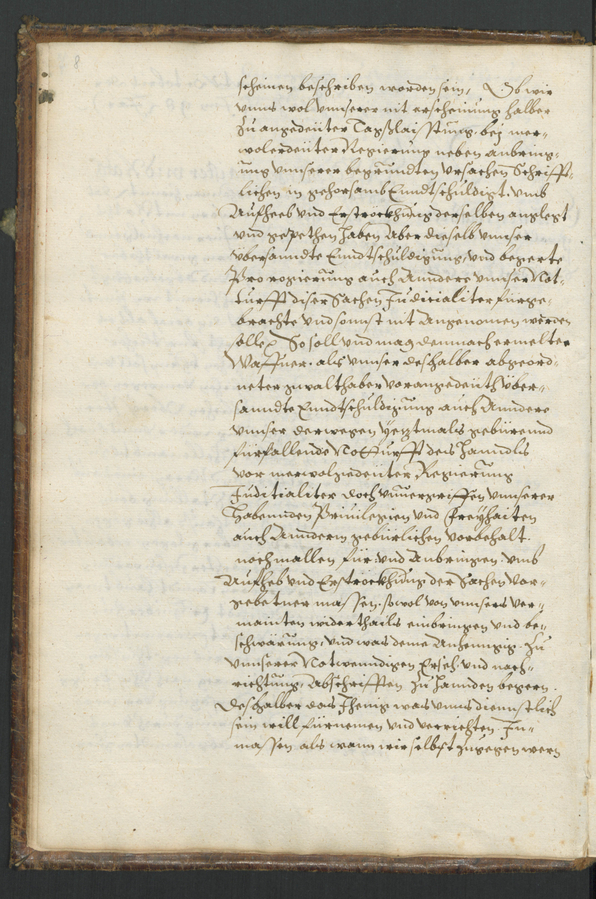 8
scheinen beschriben worden sein, Ob wir
vnns wol vnnserer nit erscheinung halber
Zu angedeüter Tagslaisstung, bej mer-
wolerdeüter Regierung neben anbring-
ung vnnserer begrundten vrsachen Schrifft-
lichen in gehorsamb Enndtschuldigt, vmb
Aufheeb vnd Erstreckhung derselben anglegt
vnd gepethen haben Aber dieselb vnnser
vbersanndte Enndtschuldigung, vnd begerte
Prorogierung auch Anndere vnnser Not-
turfft diser Sachen Judicialiter furge-
brachte vnd sonnst nit Angenomen werden
solle, So soll vnd mag dannach ermelter
Waffner, als vnnser deshalber abgeord-
neter gwalthaber vorangedeüth vber-
sanndte Enndtschuldigung auch Anndere
vnnser derwegen yeztmals gebürennd
fürfallende Notturfft des Hanndls
vor merwolgedeüter Regierung
Juditialiter doch vnuergriffen vnnserer
habennden Priuilegien vnd Freyhaiten
auch Anndern gebürlichen Vorbehalt
nochmallen für: vnd Anbringen, vmb
Aufheb vnd Erstreckhung der Sachen vor-
gebetner massen, sowol von vnnsers ver-
mainten widerthails einbringen vnd be-
schwärung, vnd was deme Anhenngig, Zu
vnnserer Notwendigen Erseh: vnd nach-
richtung, Abschrifften Zu Hannden begern.
Deshalber das Jhenig was vnns diennstlich
sein will fürnemen vnd verrichten, In-
massen als wann wir selbst zugegen wern